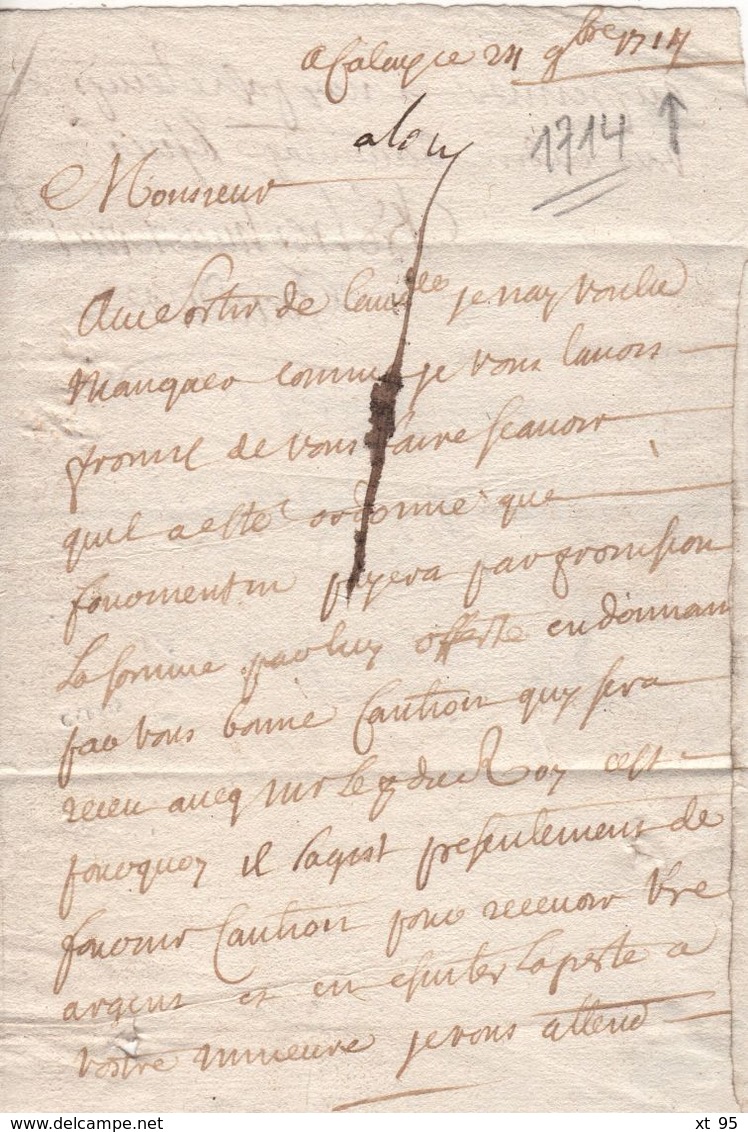 a falayse 24 9bre 1714
1714
Monsieur
Au sortir de laud.ce je nay voulu
manquer comme je vous lauois
promis de vous faire scauoir
quil a esté ordonné que
payera par prouision
la somme par luy offerte en donnant
par vous bonne caution quy sera
receu aueq Mr le p du Roy cest
pourquoy il sagist presentement de
fournir caution pour receuoir vre
argent et en euiter la perte a
vostre mineure je vous attend
xt 95